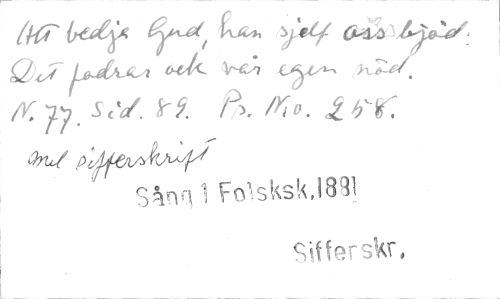 Att bedja Gud, han sjelf oss bjöd.
Det fodrar ock vår egen nöd.
N. 77. Sid. 89. Ps. No. 258.
mel sifferskrift
Sång i Folsksk,1881
Sifferskr.